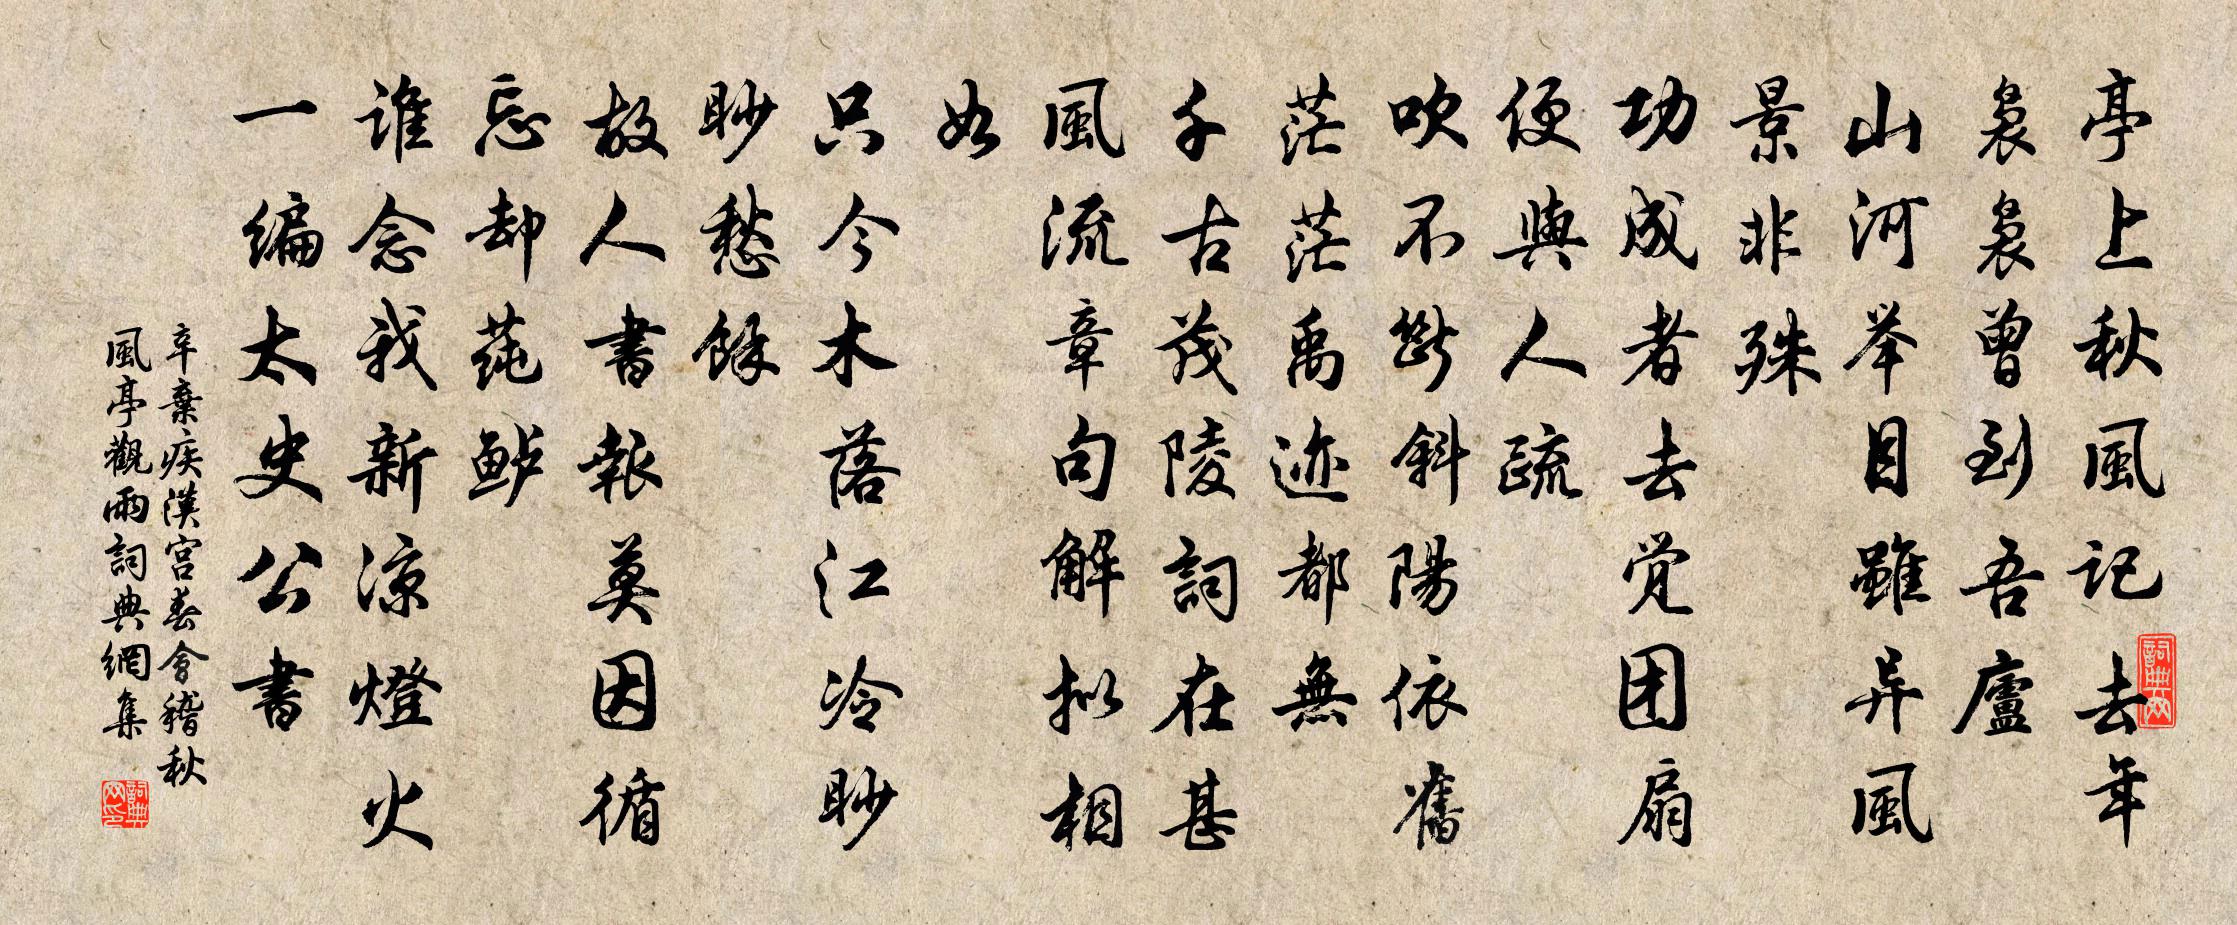 亭上秋風記去年
袅袅曾到吾廬
山河举目雖异風
景非殊
功成者去觉团扇
便與人疏
吹不断斜陽依舊
茫茫禹迹都無
千古茂陵詞在甚
風流章句解拟相
如
只今木落江冷眇
眇愁餘
故人書報莫因循
忘却莼鲈
谁念我新凉燈火
一编太史公書
辛棄疾漢宫春會稽秋
風亭觀雨詞典網集
詞典网
詞典网印